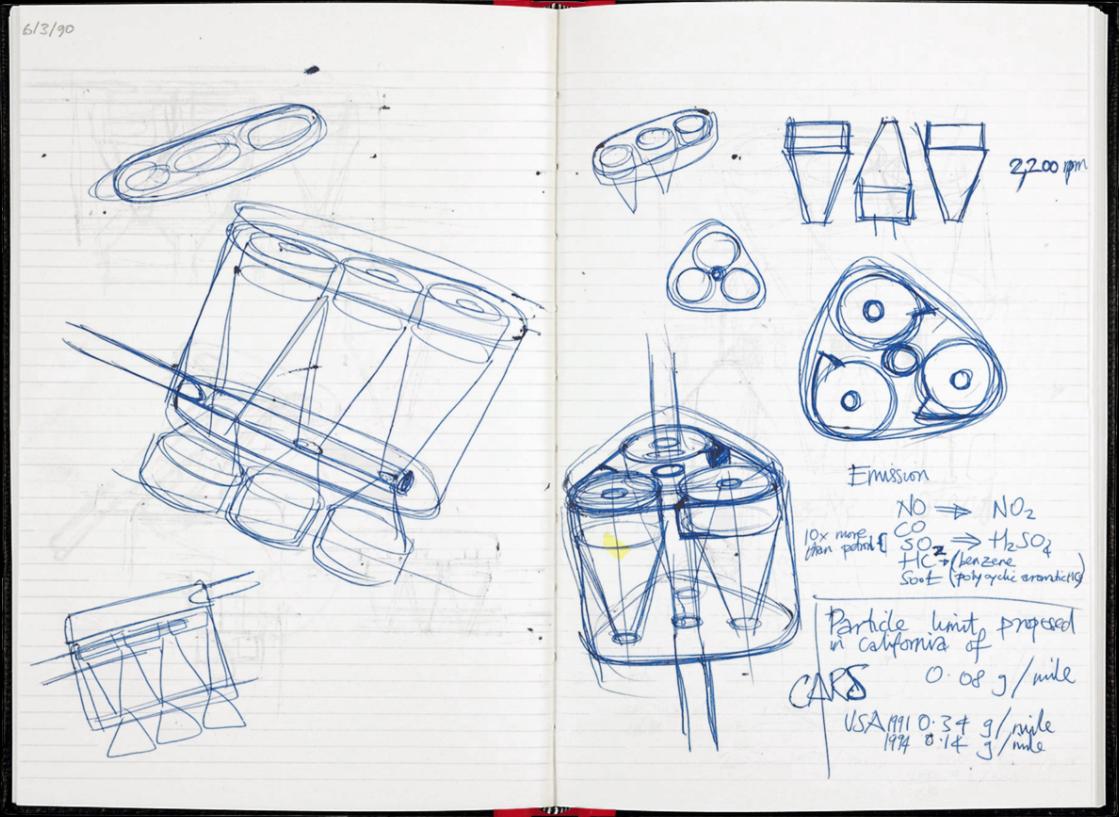 6/3/90
2,200 rpm
Emission
NO ⇒ NO₂
CO
10x more
than petrol {
SO₂ ⇒ H₂SO₄
HC → (benzene
Soot (polycyclic aromatic HC)
Particle limit proposed
in California of
0.08 g/mile
CARS
USA 1991 0.34 g/mile
1994 0.14 g/mile